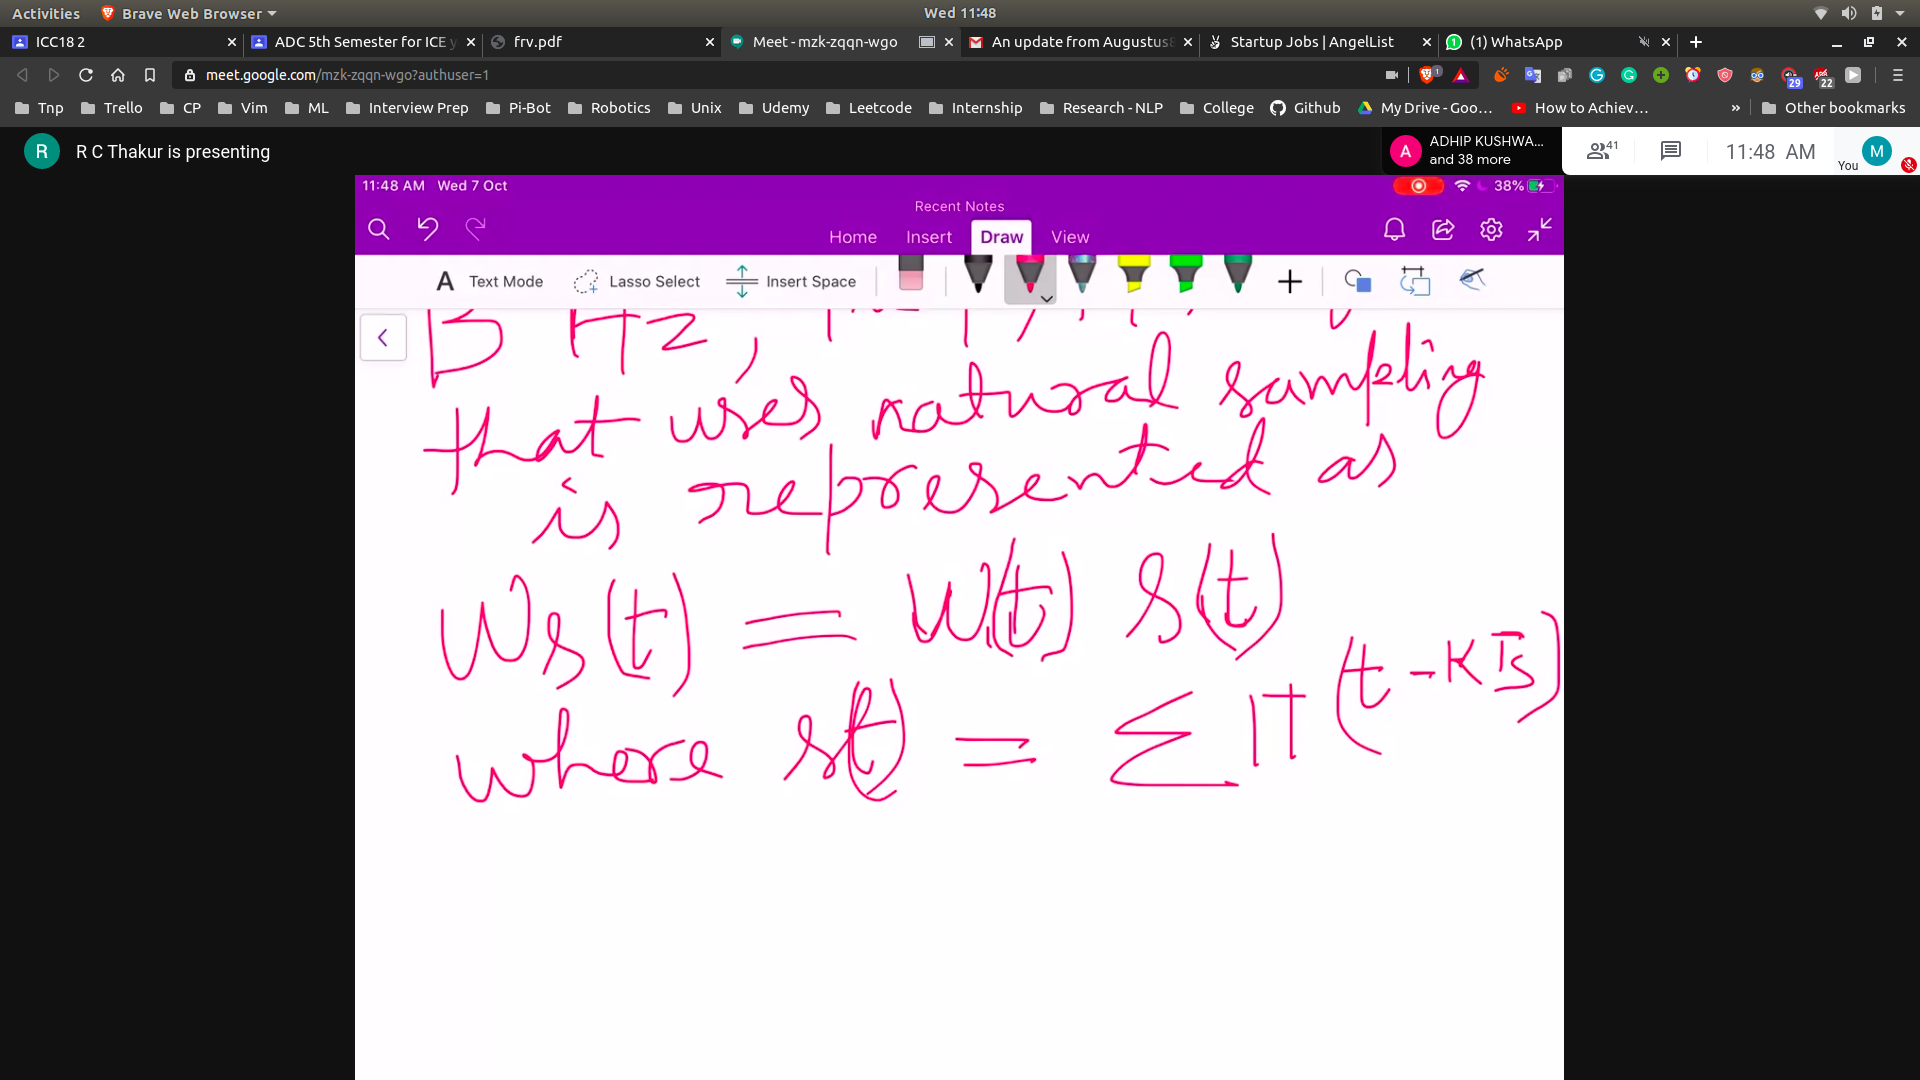 Activities Brave Web Browser Wed 11:48
ICC18 2 ADC 5th Semester for ICE frv.pdf Meet - mzk-zqqn-wgo An update from Augustus Startup Jobs | AngelList (1) WhatsApp
meet.google.com/mzk-zqqn-wgo?authuser=1 1 29 22
Tnp Trello CP Vim ML Interview Prep Pi-Bot Robotics Unix Udemy Leetcode Internship Research - NLP College Github My Drive - Goo… How to Achiev… » Other bookmarks
R R C Thakur is presenting
A ADHIP KUSHWA...
and 38 more
41 11:48 AM You M
11:48 AM Wed 7 Oct 38%
Recent Notes
Home Insert Draw View
A Text Mode Lasso Select Insert Space
B Hz,
that uses natural sampling
is represented as
Ws(t) = W(t) s(t)
where s(t) = Σ Π (t - KTs)